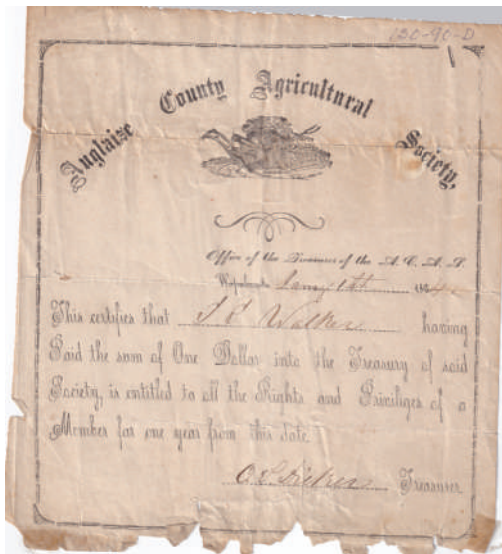 130-90-D
Auglaize County Agricultural Society,
Office of the Treasurer of the A. C. A. S.
Wapakoneta
This certifies that Walker having
Paid the sum of One Dollar into the Treasury of said
Society, is entitled to all the Rights and Priviliges of a
Member for one year from this date.
Treasurer